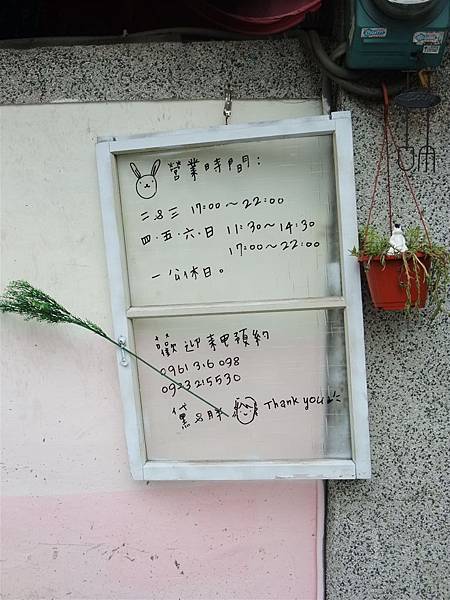 營業時間：
二&三 17:00～22:00
四.五.六.日 11:30～14:30
17:00～22:00
一公休日。
歡迎來電預約
0961 316 098
0933215530
黛&胖 Thank you